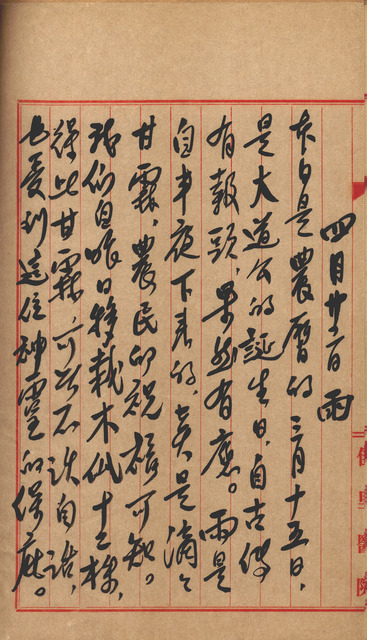 四月廿二日 雨
本日是農曆的三月十五日，
是大道公的誕生日，自古傳
有報頭，果然有應。雨是
自半夜下來的，真是滴々
甘霖，農民的祝禱可知。
我們自昨日移栽木十二株，
得此甘霖，可不自，
也受到這位神靈的保庇。
醫院